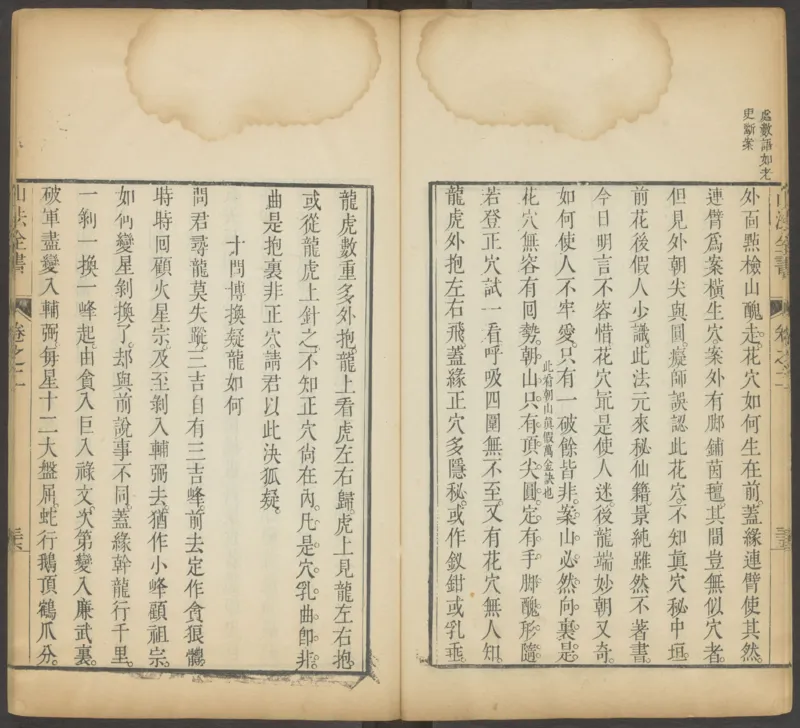 處數語如老
吏斷案
外面點檢山醜走。花穴如何生在前。蓋緣連臂使其然。
連臂爲案橫生穴。案外有脚鋪茵氊。其間豈無似穴者。
但見外朝尖與圓。癡師誤認此花穴。不知眞穴秘中垣。
前花後假人少識。此法元來秘仙籍。景純雖然不著書。
今日明言不容惜。花穴最是使人迷。後龍端妙朝又奇。
如何使人不牢愛。只有一破餘皆非。案山必然向裏是。
花穴無容有回勢。朝山只有頂尖圓。定有手脚醜形隨。
此看朝山眞假萬金訣也
若登正穴試一看。呼吸四圍無不至。又有花穴無人知。
龍虎外抱左右飛。蓋緣正穴多隱秘。或作釵鉗或乳垂。
山法全書
卷之十
龍虎數重多外抱。龍上看虎左右歸。虎上見龍左右抱。
或從龍虎上針之。不知正穴尙在內。凡是穴乳曲卽非。
曲是抱裏非正穴。請君以此決狐疑。
十問博換疑龍如何
問君尋龍莫失蹤。三吉自有三吉峰。前去定作貪狼體。
時時回顧火星宗。及至剝入輔弼去。猶作小峰顧祖宗。
如何變星剝換了。却與前說事不同。蓋緣幹龍行千里。
一剝一換一峰起。由貪入巨入祿文。次第變入廉武裏。
破軍盡變入輔弼。每星十二大盤屈。蛇行鵝頂鶴爪分。
山法全書
卷之十